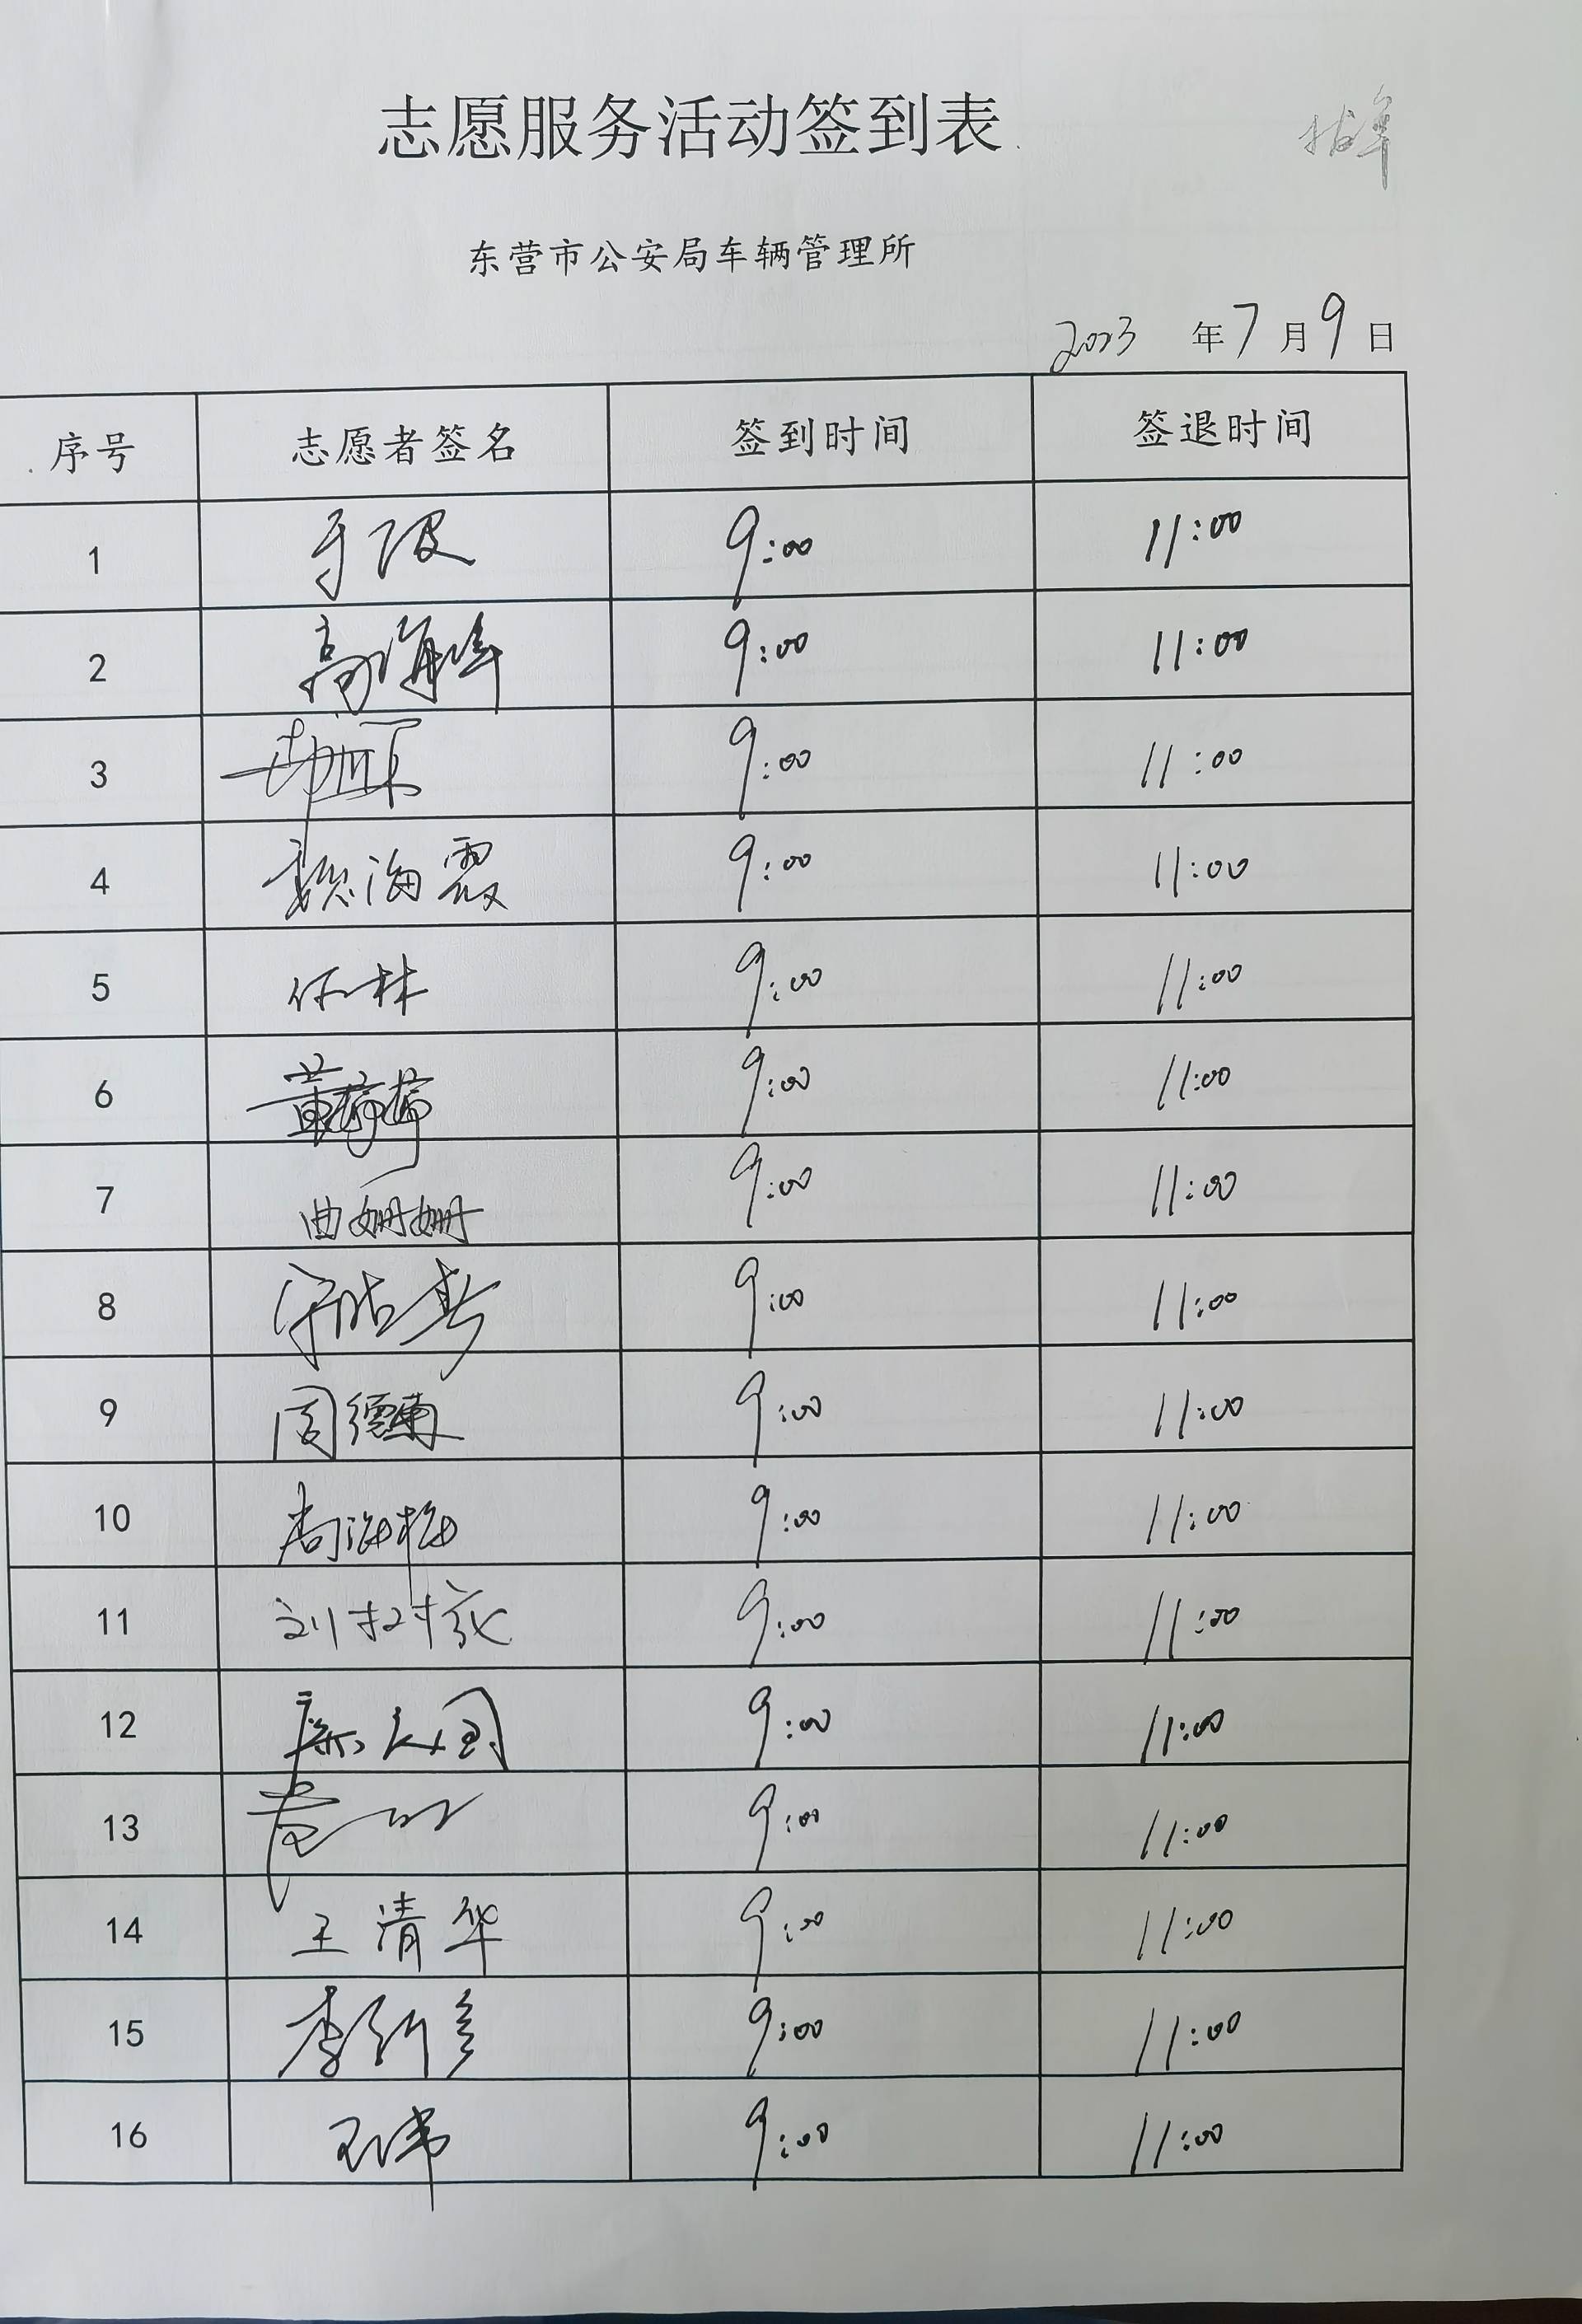 志愿服务活动签到表
东营市公安局车辆管理所
2023 年 7 月 9 日
序号 志愿者签名 签到时间 签退时间
1 9:00 11:00
2 高海峰 9:00 11:00
3 9:00 11:00
4 魏海霞 9:00 11:00
5 任林 9:00 11:00
6 黄婷婷 9:00 11:00
7 曲姗姗 9:00 11:00
8 9:00 11:00
9 周德菊 9:00 11:00
10 尚海梅 9:00 11:00
11 刘树森 9:00 11:00
12 9:00 11:00
13 9:00 11:00
14 王清华 9:00 11:00
15 9:00 11:00
16 王伟 9:00 11:00